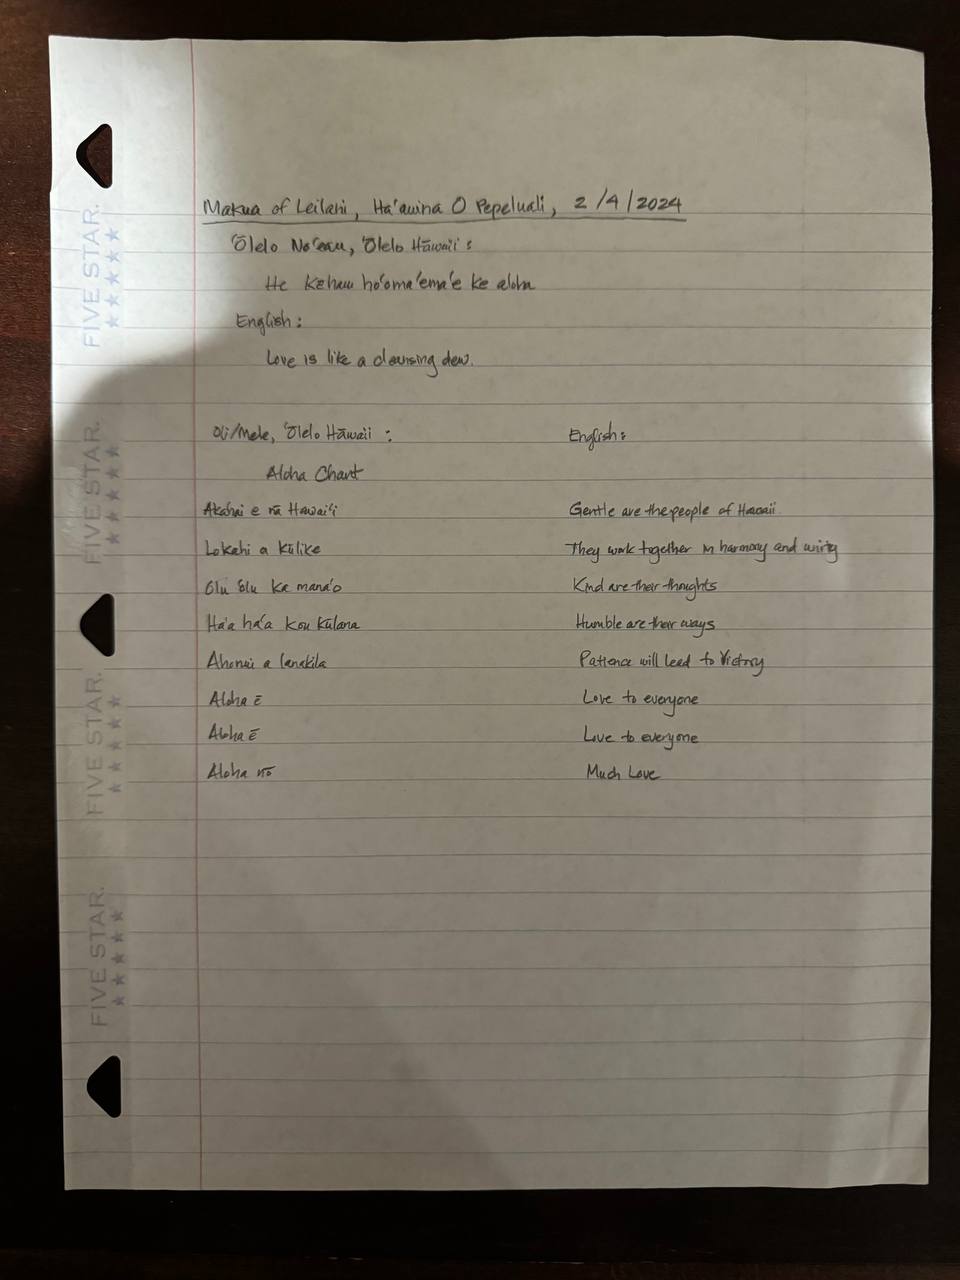 Makua of Leilani, Ha'awina O Pepeluali, 2/4/2024
'Ōlelo No'eau, 'Ōlelo Hāwaii :
He Kēhau ho'oma'ema'e ke aloha
English :
Love is like a cleansing dew.
Oli/Mele, 'Ōlelo Hāwaii :
English :
Aloha Chant
Akahai e nā Hawai'i
Gentle are the people of Hawaii
Lokahi a Kūlike
They work together in harmony and unity
Olu 'olu ka mana'o
Kind are their thoughts
Ha'a ha'a kou Kūlana
Humble are their ways
Ahonui a lanakila
Patience will lead to Victory
Aloha ē
Love to everyone
Aloha ē
Love to everyone
Aloha nō
Much Love
FIVE STAR.
FIVE STAR.
FIVE STAR.
FIVE STAR.